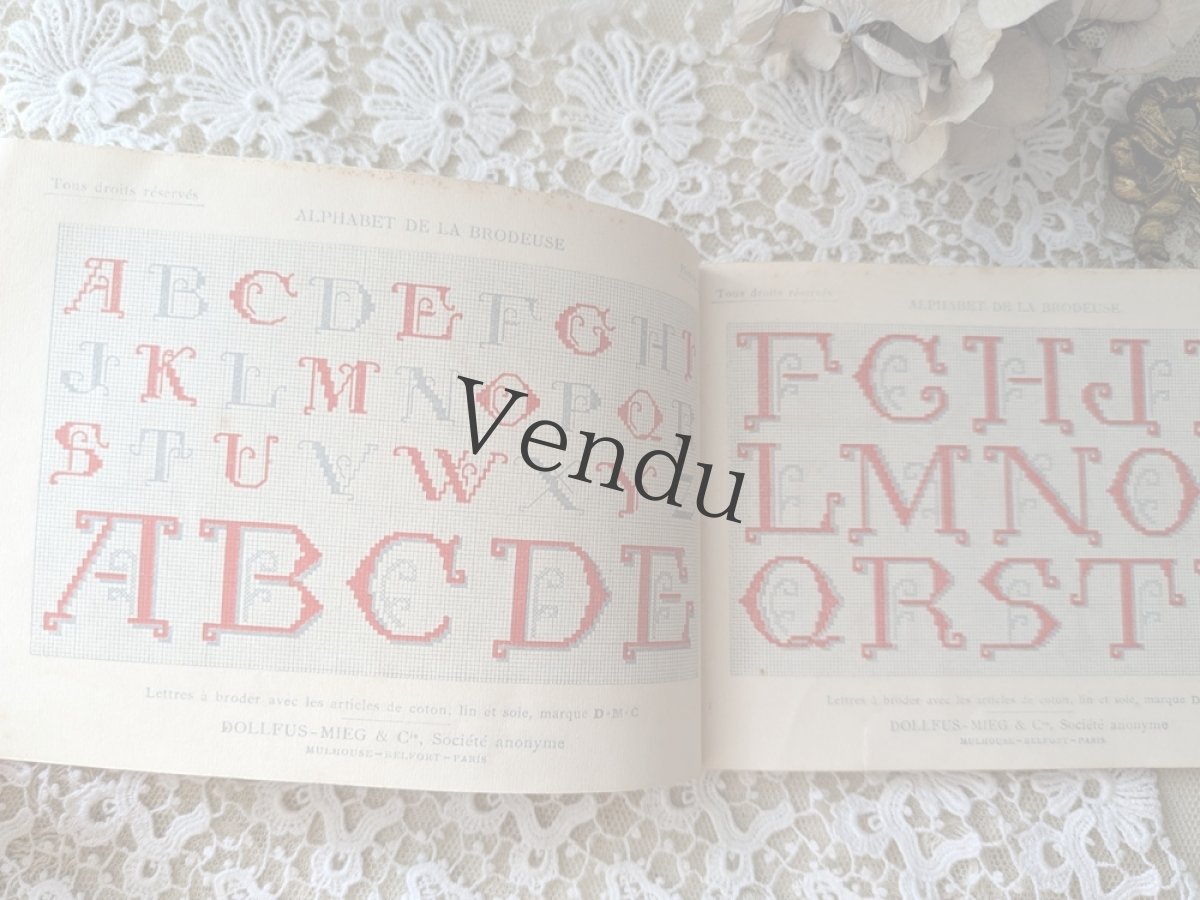 Tous droits réservés
ALPHABET DE LA BRODEUSE
A B C D E F G H I
J K L M N O P Q R
S T U V W X Y Z
A B C D E
Lettres à broder avec les articles de coton, lin et soie, marque D·M·C
DOLLFUS-MIEG & Cie, Société anonyme
MULHOUSE-BELFORT-PARIS
Vendu
Tous droits réservés
ALPHABET DE LA BRODEUSE
F G H J
L M N O
Q R S T
Lettres à broder avec les articles de coton, lin et soie, marque D
DOLLFUS-MIEG & Cie, Société anonyme
MULHOUSE-BELFORT-PARIS